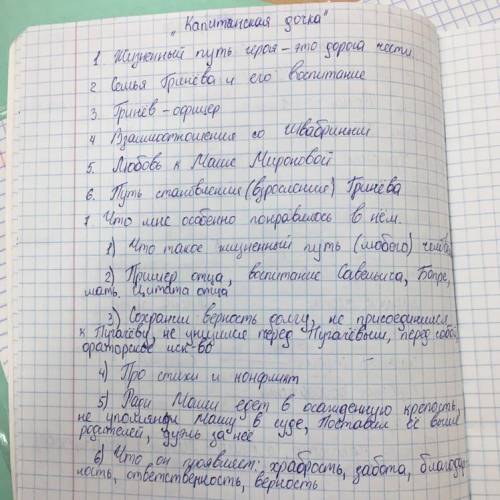 „Капитанская дочка"
1. Жизненный путь героя – это дорога чести.
2 Семья Гринёва и его воспитание
3. Гринёв – офицер
4 Взаимоотношения со Швабриным
5. Любовь к Маше Мироновой
6. Путь становления (взросление) Гринёва
7. Что мне особенно понравилось в нём.
1) Что такое жизненный путь (любого)
2) Пример отца, воспитание Савельича, Бопре,
мать. Цитата отца
3) Сохранил верность долгу, не присоединился
к Пугачёву, не унизился перед Пугачёвым, перед собой
ораторское иск-во
4) Про стихи и конфликт
5) Ради Маши едет в осажденную крепость,
не упомянул Машу в суде, поставил её выше
родителей, дуэль за неё
6) Что он проявляет: храбрость, забота, благодар
ность, ответственность, верность